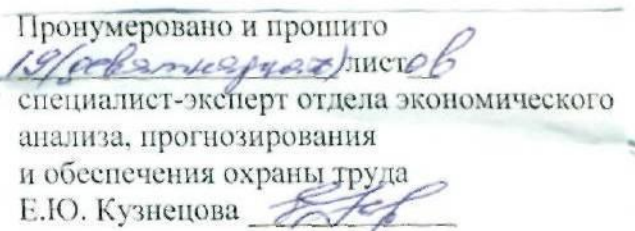 Пронумеровано и прошито
19 (девятнадцать) листов
специалист-эксперт отдела экономического
анализа, прогнозирования
и обеспечения охраны труда
Е.Ю. Кузнецова